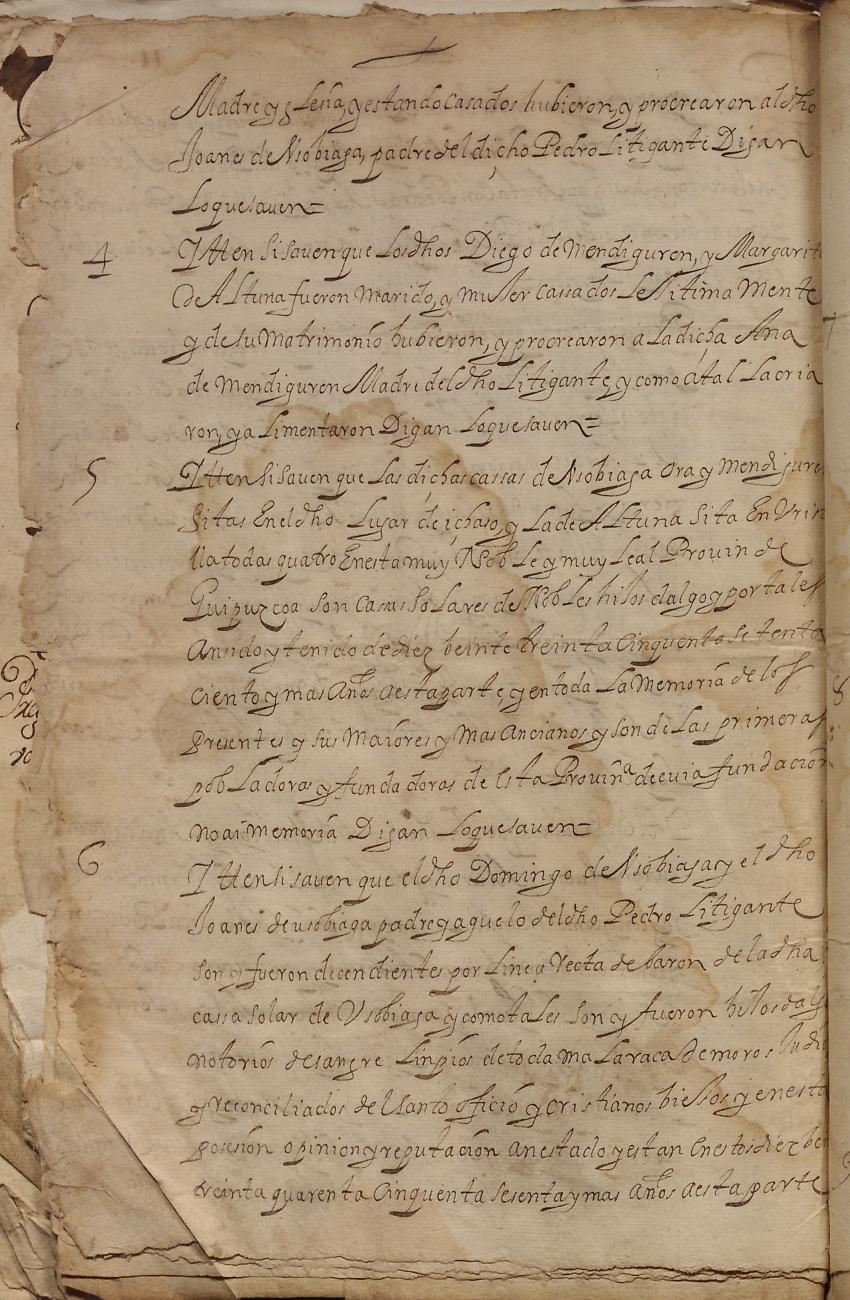 Madre yglesia, y estando casados hubieron, y procrearon al dho
Joanes de Vsobiaga, padre del dicho Pedro Litigante Digan
Lo que saven=
4 Ytten si saven que Los dhos Diego de Mendiguren, y Margarit
de Altuna fueron marido, y muger cassados Lexitima Mente
y de su Matrimonio hubieron, y procrearon a La dicha Ana
de Mendiguren Madre del dho Litigante, y como atal La cria
ron, y a Limentaron Digan Lo que saven=
5 Ytten si saven que Las dichas cassas de Vsobiaga Ora y Mendigure
sitas En el dho Lugar de ichaso, y La de Altuna sita En Vrin
lla todas quatro En esta muy Noble y muy Leal Provin de
Guipuzcoa son Casas So Lares de Nobles hijos dalgo y por tales
an sido y tenido de diez beinte treinta Cinquenta setenta
ciento y mas Años a esta parte, y en toda La Memoria de los
Presentes y sus Maiores y Mas Ancianos y son de Las primeras
pobLadoras y fundadoras de Esta Provinª de cuia fundacion
no ai Memoria Digan Lo que saven=
6 Ytten si saven que el dho Domingo de Vsobiaga y el dho
Joanes de usobiaga padre y aguelo del dho Pedro Litigante
son y fueron decendientes por Linea Recta de baron de la dha
cassa solar de Vsobiaga y como tales son y fueron hijos dalg
notorios de sangre Linpios de toda maLa raca de moros Judi
y reconciliados del Santo officio y cristianos biejos y en esta
posesion opinion y reputacion an estado y estan En estos diez be
treinta quarenta Cinquenta sesenta y mas Años a esta parte